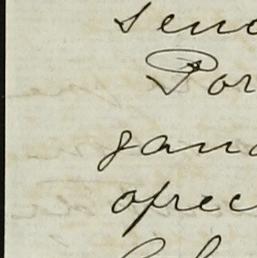 senc
Por
gana
ofrec